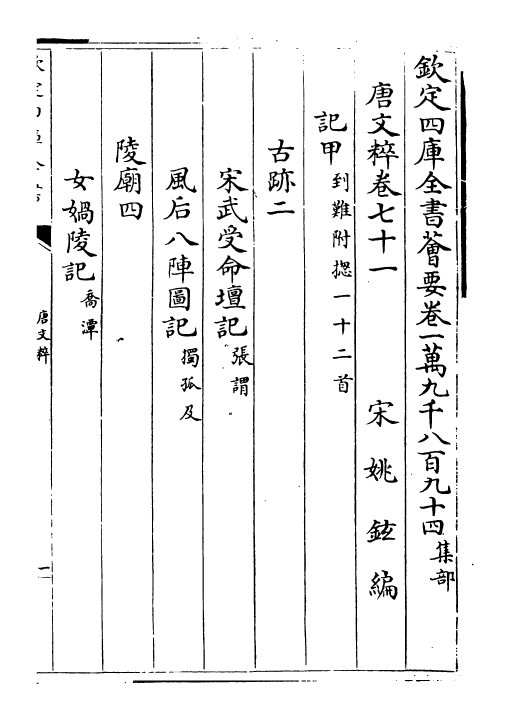 欽定四庫全書薈要卷一萬九千八百九十四集部
唐文粹卷七十一 宋姚鉉編
記甲到難附摠一十二首
古跡二
宋武受命壇記張謂
風后八陣圖記獨孤及
陵廟四
女媧陵記喬潭
唐文粹
一